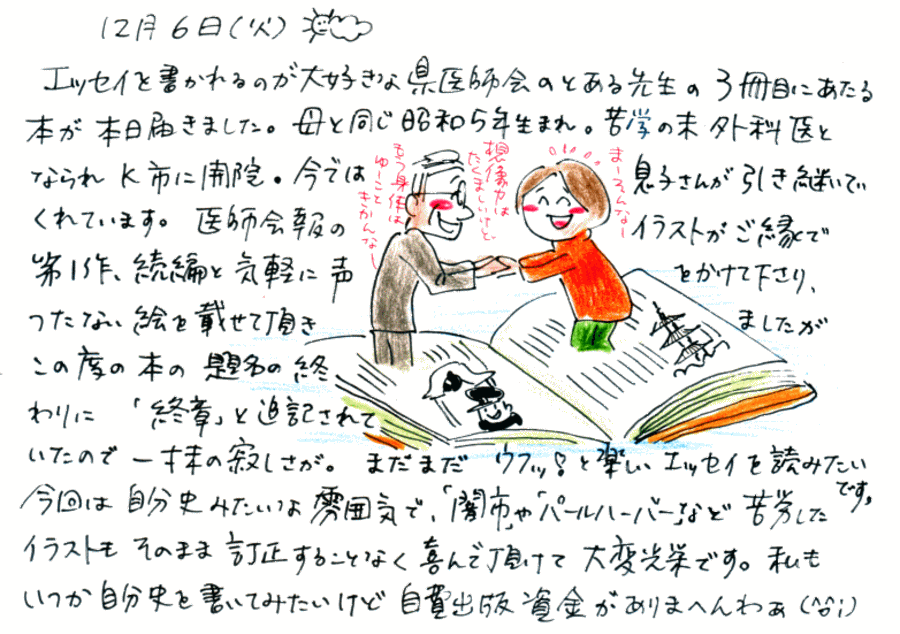 12月6日(火)
エッセイを書かれるのが大好きな県医師会のとある先生の3冊目にあたる
本が本日届きました。母と同じ昭和5年生まれ。苦学の末外科医と
なられK市に開院。今では 息子さんが引き継いで
くれています。医師会報の イラストがご縁で
第1作、続編と気軽に声 をかけて下さり、
つたない絵を載せて頂き ましたが
この度の本の題名の終
わりに「終章」と追記されて
いたので一抹の寂しさが。まだまだウフッ!と楽しいエッセイを読みたい
です。
今回は自分史みたいな雰囲気で、「闇市」や「パールハーバー」など苦労した
イラストもそのまま訂正することなく喜んで頂けて大変光栄です。私も
いつか自分史を書いてみたいけど自費出版資金がありまへんわぁ(^^;)
もう身体は
ゆーこと
きかんなし
想像力は
たくましいけど
まーそんなー